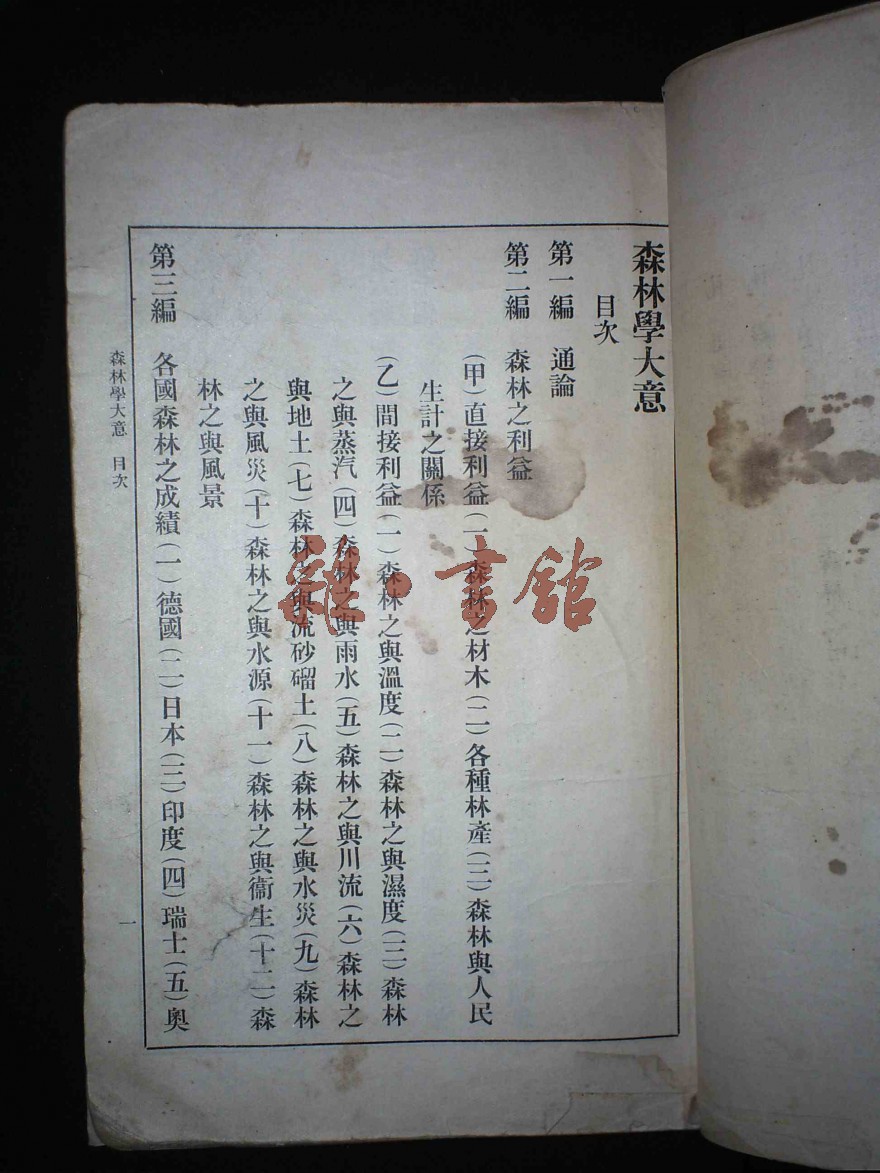 森林學大意
目次
第一編　通論
第二編　森林之利益
(甲)直接利益(一)森林之材木(二)各種林產(三)森林與人民
生計之關係
(乙)間接利益(一)森林之與溫度(二)森林之與濕度(三)森林
之與蒸汽(四)森林之與雨水(五)森林之與川流(六)森林之
與地土(七)森林之與流砂磂土(八)森林之與水災(九)森林
之與風災(十)森林之與水源(十一)森林之與衞生(十二)森
林之與風景
第三編　各國森林之成績(一)德國(二)日本(三)印度(四)瑞士(五)奧
森林學大意　目次
一
書館